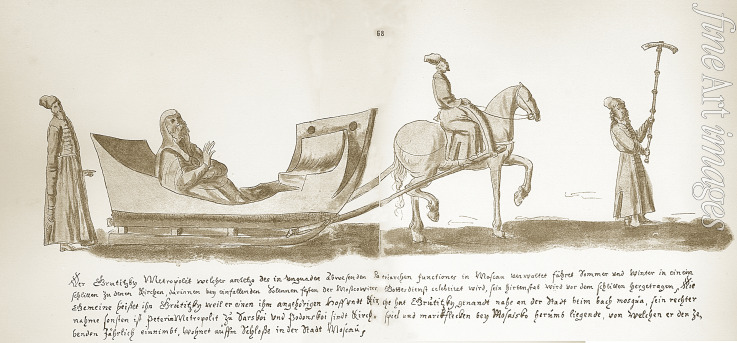 68
Der Crutitzky Metropolit welcher anietzo des in ungnaden Abwesenden Patriarchen functiones in Moscau verwaltet führet Sommer und Winter in einem
schlitten zu denen Kirchen darinnen bey einfallenden Solennen festen der Moscowiter Gottesdienst celebriret wird, sein hirtenstab wird vor dem schlitten hergetragen, Die
Gemeine heißet ihn Crutitzky weil er einen ihm angehörigen Hoff und Kirche has Crutitzky genandt nahe an der Stadt beim bach mosqua, sein rechter
nahme sonsten ist Peter Metropolit zu Sarskoi und Podonskoi sindt Kirchspiel und marktflecken bey Mosaisko herumb liegende, von welchen er den Ze,
henden Jährlich einnimbt, wohnet auffm Schloße in der Stadt Moscau,
fine Art images